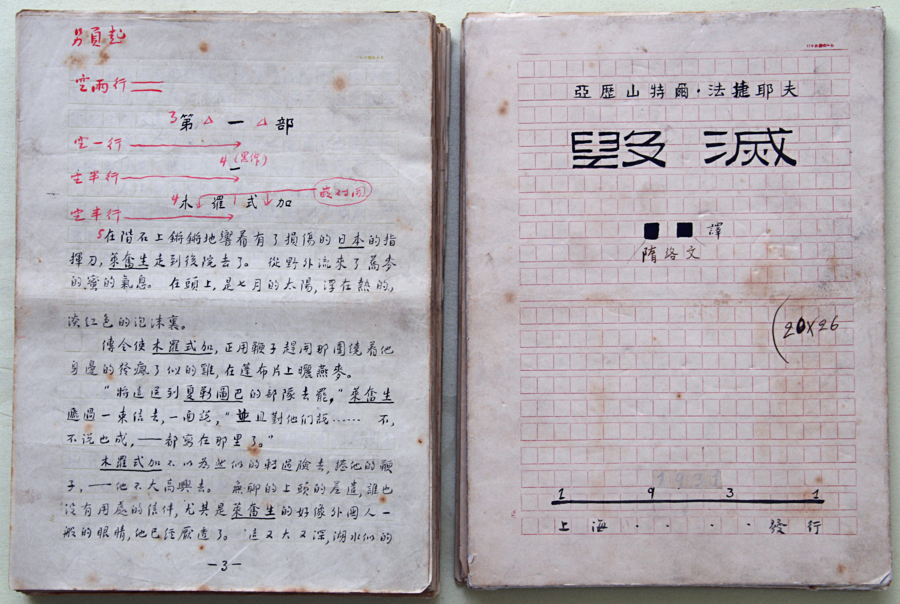 另頁起
空兩行
3第 一 部
空一行
4(黑体)
一
空半行
4木 羅 式 加
空半行
5在階石上鏘鏘地響着有了損傷的日本的指
揮刀,萊奮生走到後院去了。 從野外流來了蕎麥
的蜜的氣息。 在頭上,是七月的太陽,浮在熱的,
淡紅色的泡沫裏。
傳令使木羅式加,正用鞭子趕開那圍繞着他
身邊的發瘋了似的雞,在蓬布片上曬燕麥。
“將這送到夏勒圖巴的部隊去罷,”萊奮生
遞過一束信去,一面說,“並且對他們說…… 不,
不說也成,——都寫在那里了。”
木羅式加不以為然似的轉過臉去,捲他的鞭
子,——他不大高興去。 無聊的上頭的差遣,誰也
沒有用處的信件,尤其是萊奮生的好像外國人一
般的眼睛,他已經厭透了。 這又大又深,湖水似的
—3—
亞歷山特爾·法捷耶夫
毀 滅
■ ■ 譯
隋洛文
(20×26
1931
1 9 3 1
上海····發行